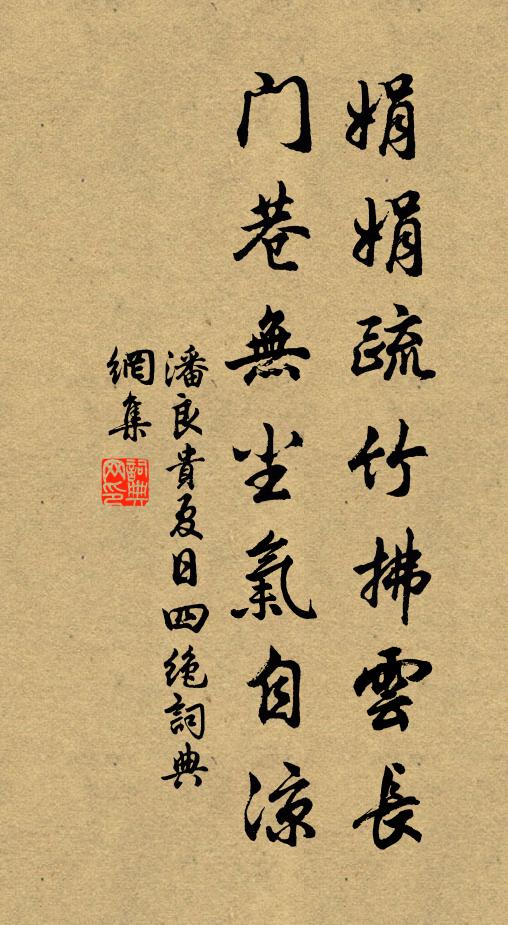 娟娟疏竹拂雲長
門巷無尘氣自涼
潘良貴夏日四绝詞典
網集
詞典
网印